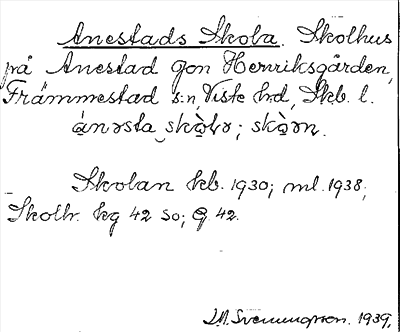 Anestads Skola. Skolhus
på Anestad Gon Henriksgården,
Främmestad s:n, Viste hrd, Skb. l.
ànəsta skòlə; skòən.
Skolan kb. 1930; ml. 1938;
Skolhr. kg 42 so; G 42.
J.A. Svenungsson. 1939.